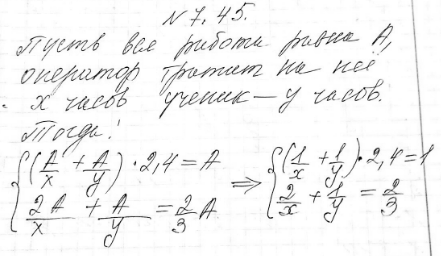 № 7.45.
Пусть вся работа равна A,
оператор тратит на неё
x часов ученик — y часов.
Тогда:
{(A/x + A/y) · 2,4 = A ⇒ {(1/x + 1/y) · 2,4 = 1
{2A/x + A/y = 2/3 A {2/x + 1/y = 2/3